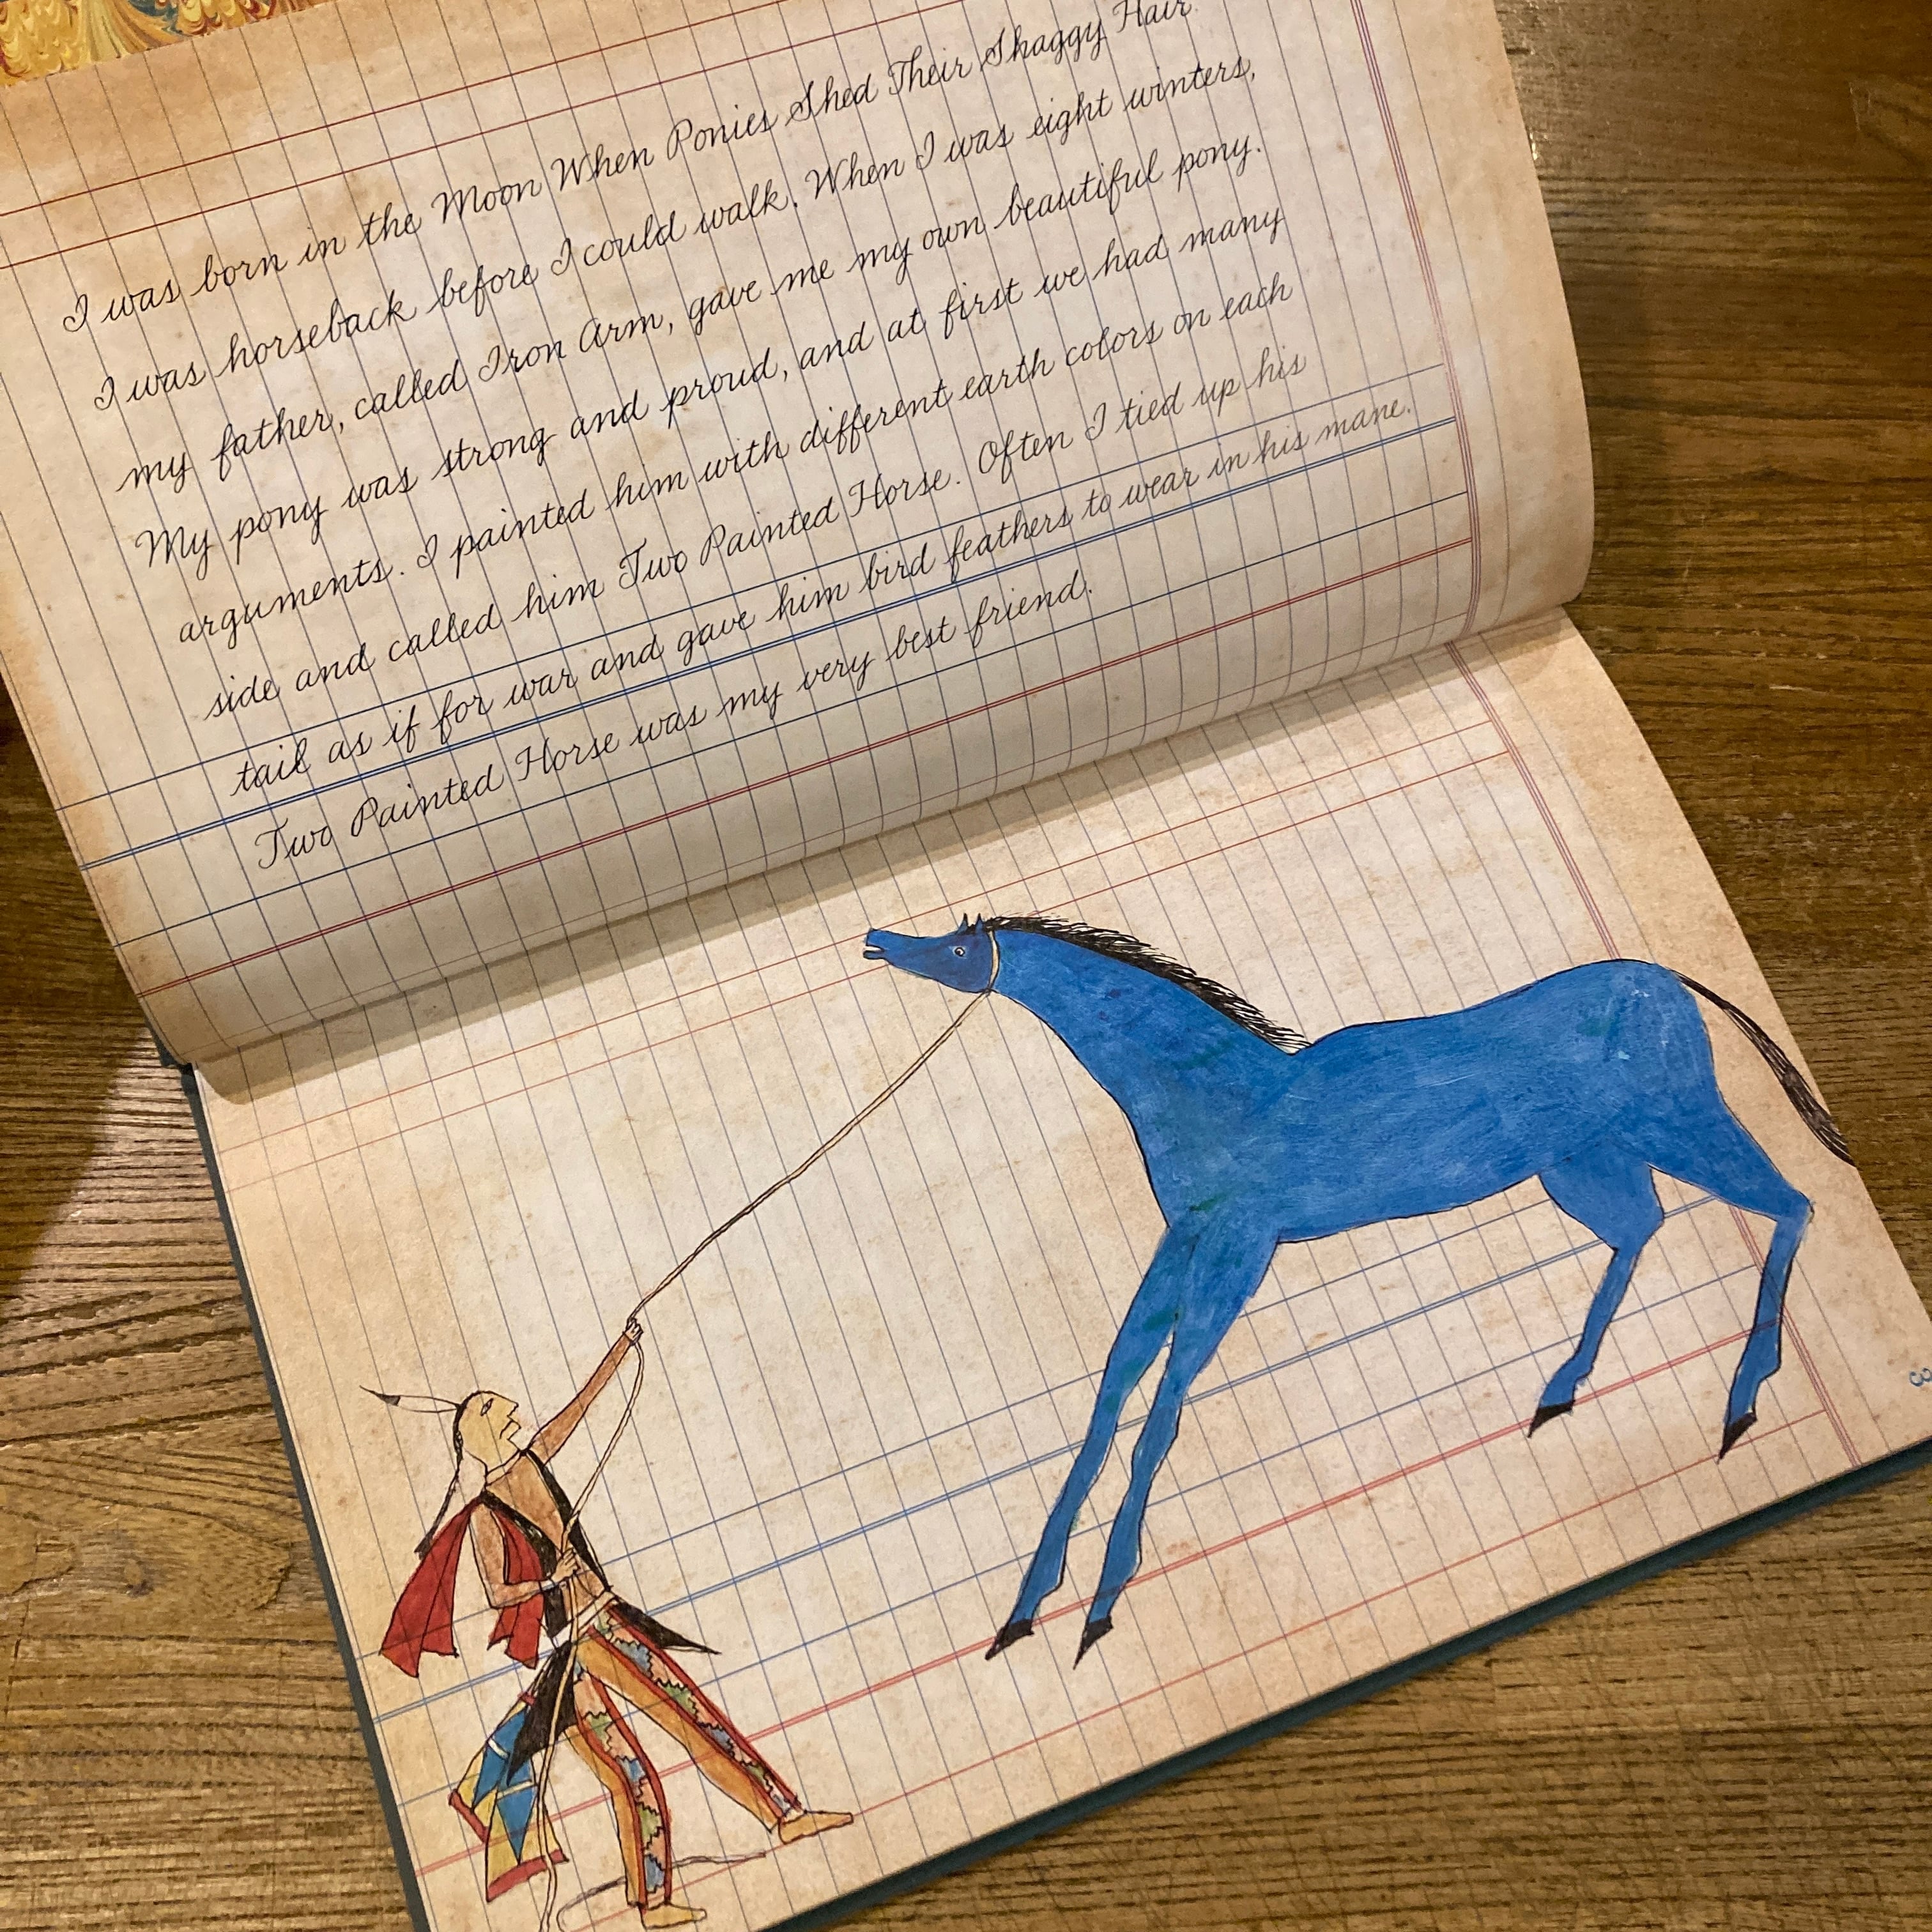 I was born in the Moon When Ponies Shed Their Shaggy Hair.
I was horseback before I could walk. When I was eight winters,
my father, called Iron Arm, gave me my own beautiful pony.
My pony was strong and proud, and at first we had many
arguments. I painted him with different earth colors on each
side and called him Two Painted Horse. Often I tied up his
tail as if for war and gave him bird feathers to wear in his mane.
Two Painted Horse was my very best friend.